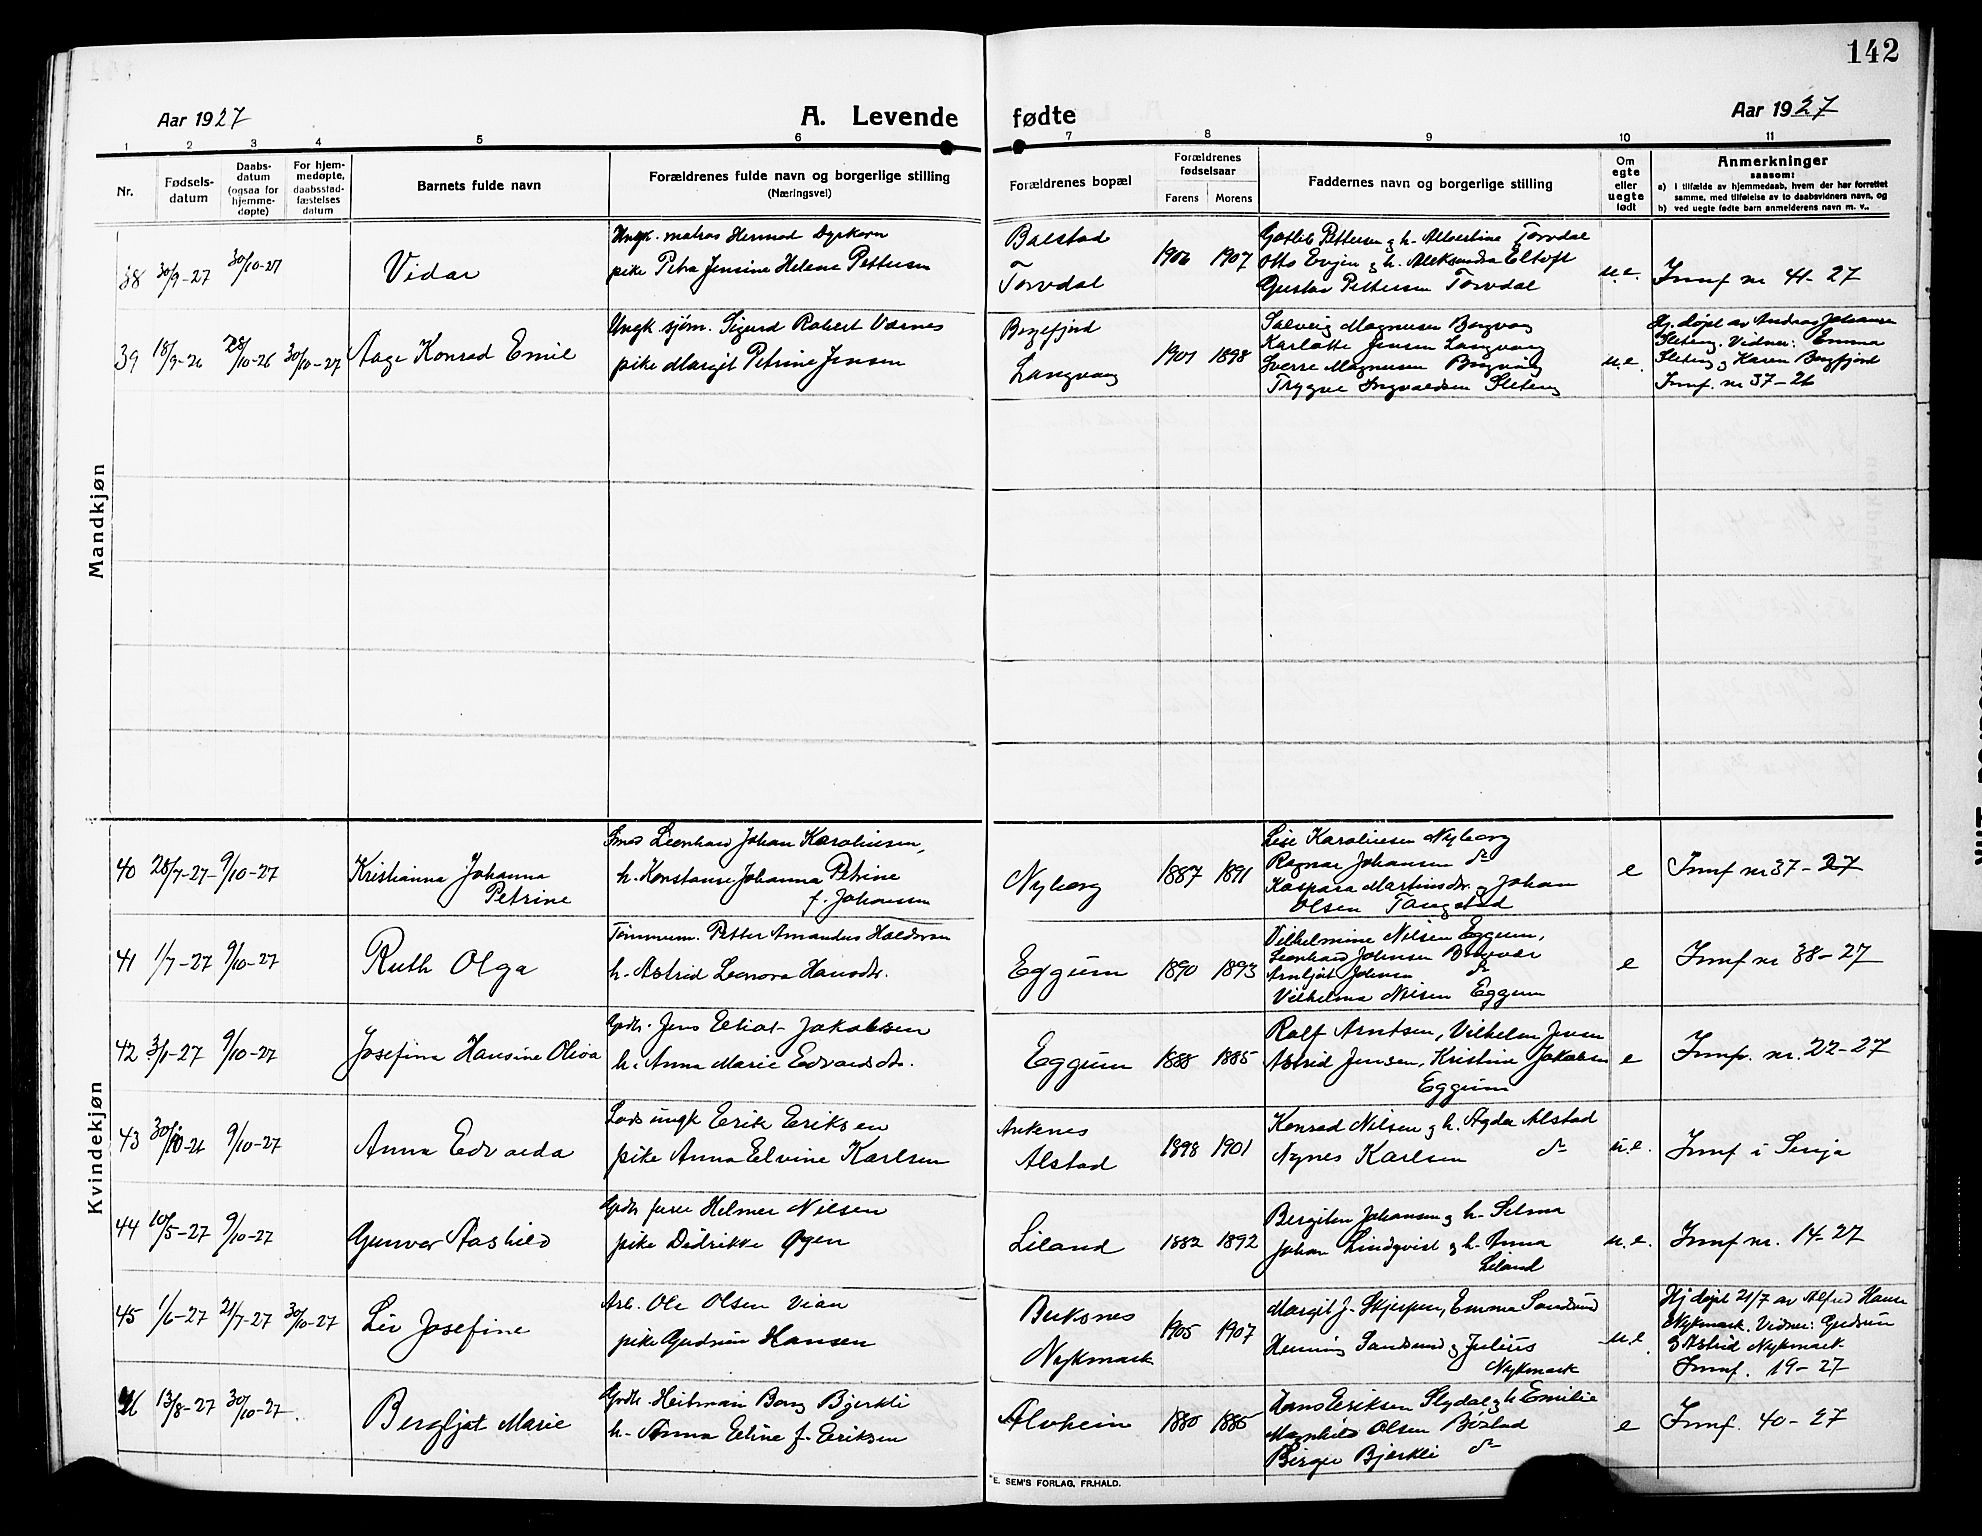 142
Aar 1927
A. Levende
fødte
Aar 1927
1 2 3 4 5 6 7 8 9 10 11
Nr.
Fødsels-
datum
Daabs-
datum
(ogsaa for
hjemme-
døpte)
For hjem-
medøpte,
daabsstad-
fæstelses
datum
Barnets fulde navn
Forældrenes fulde navn og borgerlige stilling
(Næringsvei)
Forældrenes bopæl
Forældrenes
fødselsaar
Farens Morens
Faddernes navn og borgerlige stilling
Om
egte
eller
uegte
født
Anmerkninger
saasom:
a) i tilfælde av hjemmedaab, hvem der har forrettet
samme, med tilføielse av to daabsvidners navn, og
b) ved uegte fødte barn anmelderens navn m. v..
Mandkjøn
38 30/9-27 30/10-27
Vidar
Ungk. matros Hermod Dyrkorn
pike Petra Jensine Helene Pettersen
Balstad
Torvdal
1907
Gotlib Pettersen og h. Albertine Torvdal
Otto Evjen og h. Aleksandra Eltoft
Gustav Pettersen Torvdal
u.e.
Innf nr 41-27
39 18/9-26 28/10-26 30/10-27
Aage Konrad Emil
Ungk. sjøm. Sigurd Robert Værnes
pike Margit Petrine Jensen
Borgfjord
Langvag
1901 1898
Solveig Magnussen Borgvag
Karlotte Jensen Langvag
Sverre Magnussen Borgvag
Trygve Ingvaldsen Sleteng
u.e.
Hj. døpt av Andreas Johansen
Sleteng. Vidner: Emma
Sleteng og Karen Borgfjord
Innf. nr 37-26
Kvindekjøn
40 28/7-27 9/10-27
Kristianna Johanna
Petrine
Smed Leonhard Johan Karoliusen,
h. Konstanse Johanna Petrine
f. Johansen
Nyborg
1887 1891
Lise Karoliusen Nyborg
Ragnar Johansen do
Kaspara Martinsdtr. og Johan
Olsen Tangstad
e
Innf nr 37-27
41 1/7-27 9/10-27
Ruth Olga
Tømmerm. Petter Amandus Haldorsen
h. Astrid Leonora Hansdtr.
Eggum
1890 1893
Vilhelmine Nilsen Eggum,
Leonhard Johnsen
Arnljot Johnsen do
Vilhelma Nilsen Eggum
e
Innf nr 38-27
42 3/1-27 9/10-27
Josefina Hansine Oliva
Gbr. Jens Eliot Jakobsen
h. Anna Marie Edvardsdtr.
Eggum
1885
Rolf Arntsen, Vilhelm Jensen
Astrid Jensen, Kristine Jakobsen
Eggum
e
Innf. nr. 22-27
43 9/10-27
Anna Edvarda
Lods ungk Erik Eriksen
pike Anna Elvine Karlsen
Ankenes
Alstad
1898 1901
Konrad Nilsen og h. Agda Alstad
Agnes Karlsen do
u.e.
Innf i Senja
44 10/5-27 9/10-27
Gunvor Aashild
Helmer Nilsen
pike Didrikke Øyen
Liland
1882 1892
Bergiton Johansen og h. Selma
Johan Lindqvist og h. Anna
Liland
u.e.
Innf nr. 14-27
45 1/6-27 21/7-27 30/10-27
Liv Josefine
Arb. Ole Olsen Vian
pike Gudrun Hansen
Buksnes
Nykmark
1905 1907
Margit J. Skjerpen, Emma Sandsund
Henning Sandsund og Julius
Nykmark
u.e.
Hj døpt 21/7 av Alfred Hansen
Nykmark. Vidner: Gudrun
og Astrid Nykmark
Innf. 19-27
46 13/8-27 30/10-27.
Bergljot Marie
Gbr. Heitman Bang Bjerkli
h. Anna Eline f. Eriksen
Alvheim
1880 1885
Hans Eriksen Slydal og h Emilie
Magnhild Olsen Bøstad
Birger Bjerkli do
e
Innf. 40-27
E. SEM'S FORLAG, FR.HALD.